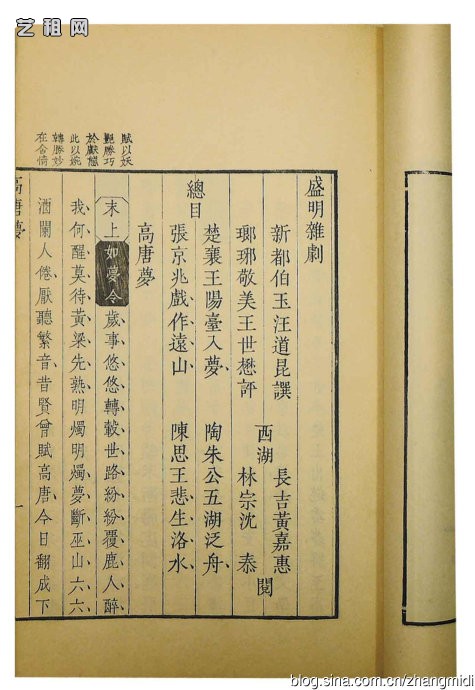 艺租网
賦以妖
艷勝巧
於獻態
此以婉
轉勝妙
在含情
盛明雜劇
新都伯玉汪道昆譔 長吉黃嘉惠
西湖 閱
瑯琊敬美王世懋評 林宗沈 泰
總目
楚襄王陽臺入夢 陶朱公五湖泛舟
張京兆戲作遠山 陳思王悲生洛水
高唐夢
末上 如夢令 歲事悠悠轉轂世路紛紛覆鹿人醉
我何醒莫待黃梁先熟明燭明燭夢斷巫山六六
酒闌人倦厭聽繁音昔賢曾賦高唐今日翻成下
高唐夢 一
blog.sina.com.cn/zhangmidi